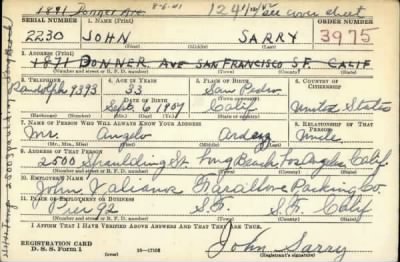 1891 Donner Ave. 8-6-41 124 see cover sheet
SERIAL NUMBER 1. NAME (Print) ORDER NUMBER
2230 JOHN SARRY 3975
(First) (Middle) (Last)
2. ADDRESS (Print)
1871 DONNER AVE SAN FRANCISCO S.F. CALIF
(Number and street or R. F. D. number) (Town) (County) (State)
3. TELEPHONE 4. AGE IN YEARS 5. PLACE OF BIRTH 6. COUNTRY OF CITIZENSHIP
Randolph 9393 33 San Pedro
DATE OF BIRTH (Town or county)
Sept. 6 1907 Calif United States
(Exchange) (Number) (Mo.) (Day) (Yr.) (State or country)
7. NAME OF PERSON WHO WILL ALWAYS KNOW YOUR ADDRESS 8. RELATIONSHIP OF THAT PERSON
Mr. Angelo Uncle
(Mr., Mrs., Miss) (First) (Middle) (Last)
9. ADDRESS OF THAT PERSON
2500 Spaulding St Long Beach Los Angeles Calif.
(Number and street or R. F. D. number) (Town) (County) (State)
10. EMPLOYER'S NAME
John Farallone Packing Co.
11. PLACE OF EMPLOYMENT OR BUSINESS
Pier 92 S.F. S.F. Calif
(Number and street or R. F. D. number) (Town) (County) (State)
I AFFIRM THAT I HAVE VERIFIED ABOVE ANSWERS AND THAT THEY ARE TRUE.
REGISTRATION CARD
D. S. S. Form 1 (over) 16-17105 John Sarry
(Registrant's signature)